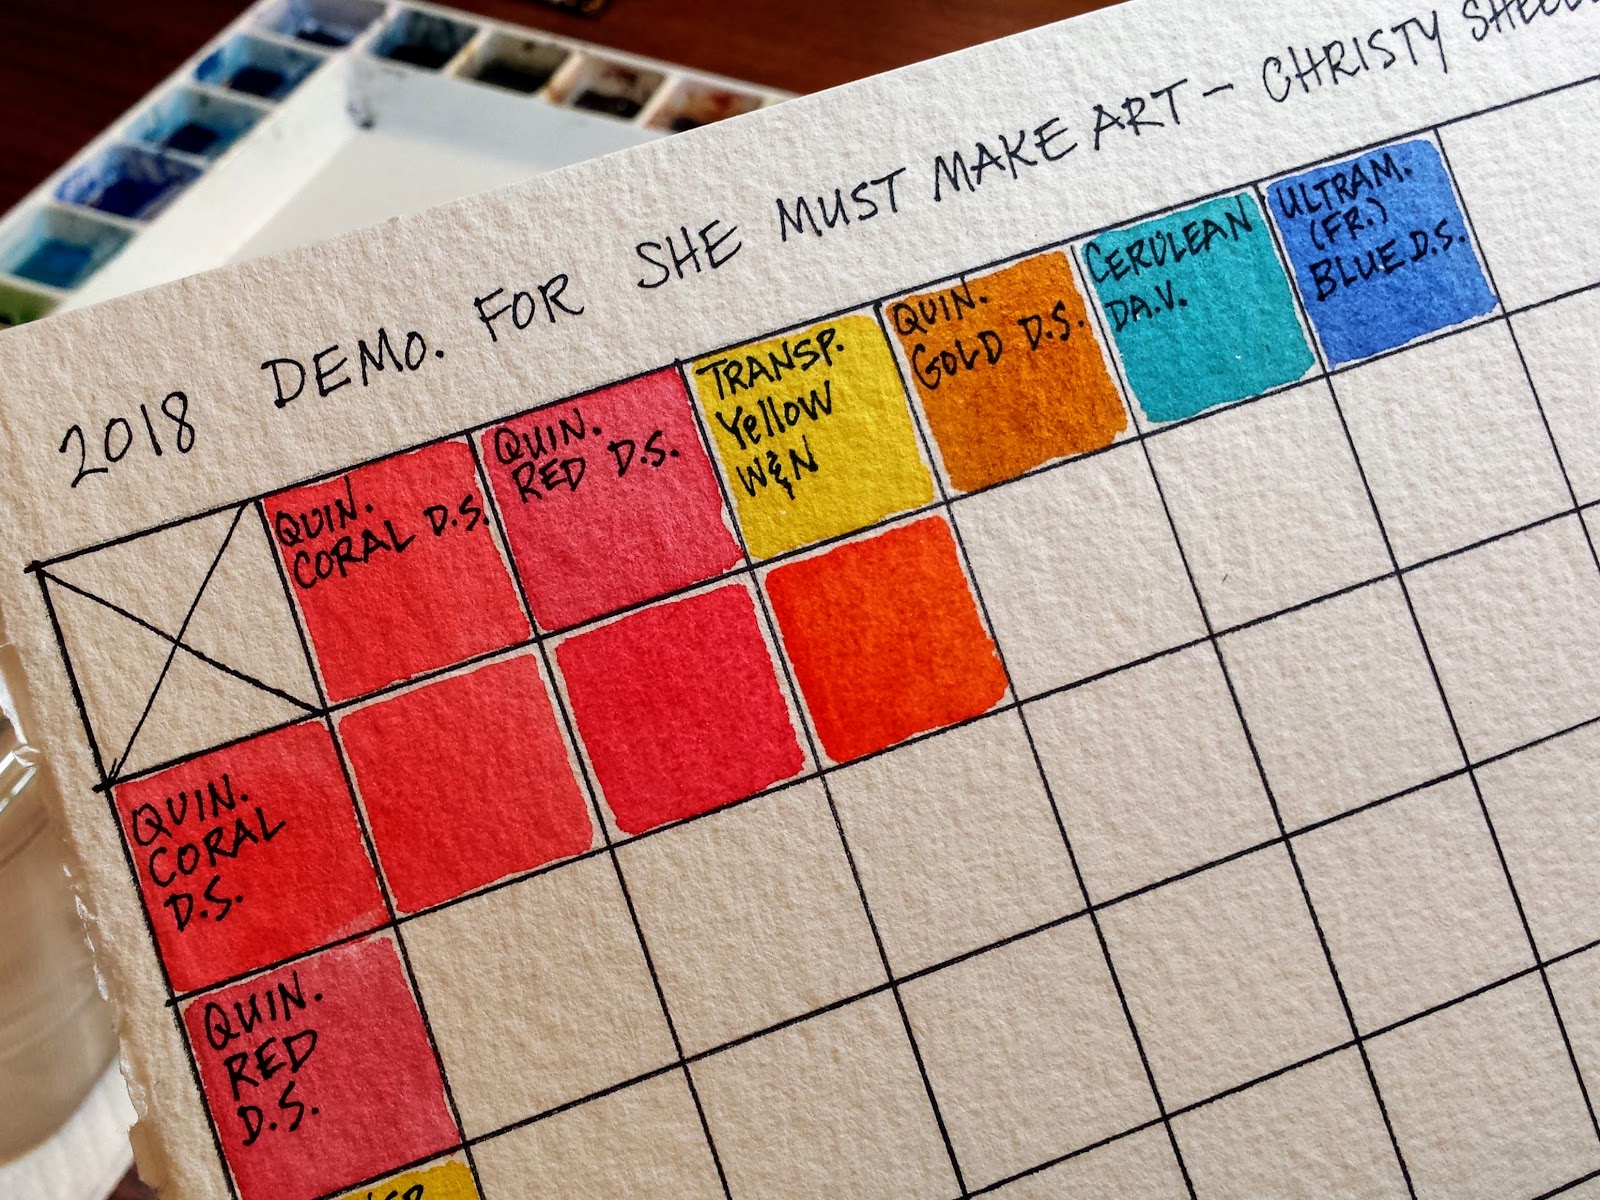 2018 DEMO. FOR SHE MUST MAKE ART - CHRISTY
QUIN.
CORAL D.S.
QUIN.
RED D.S.
TRANSP.
Yellow
W&N
QUIN.
GOLD D.S.
CERULEAN
DA.V.
ULTRAM.
(FR.)
BLUE D.S.
QUIN.
CORAL
D.S.
QUIN.
RED
D.S.